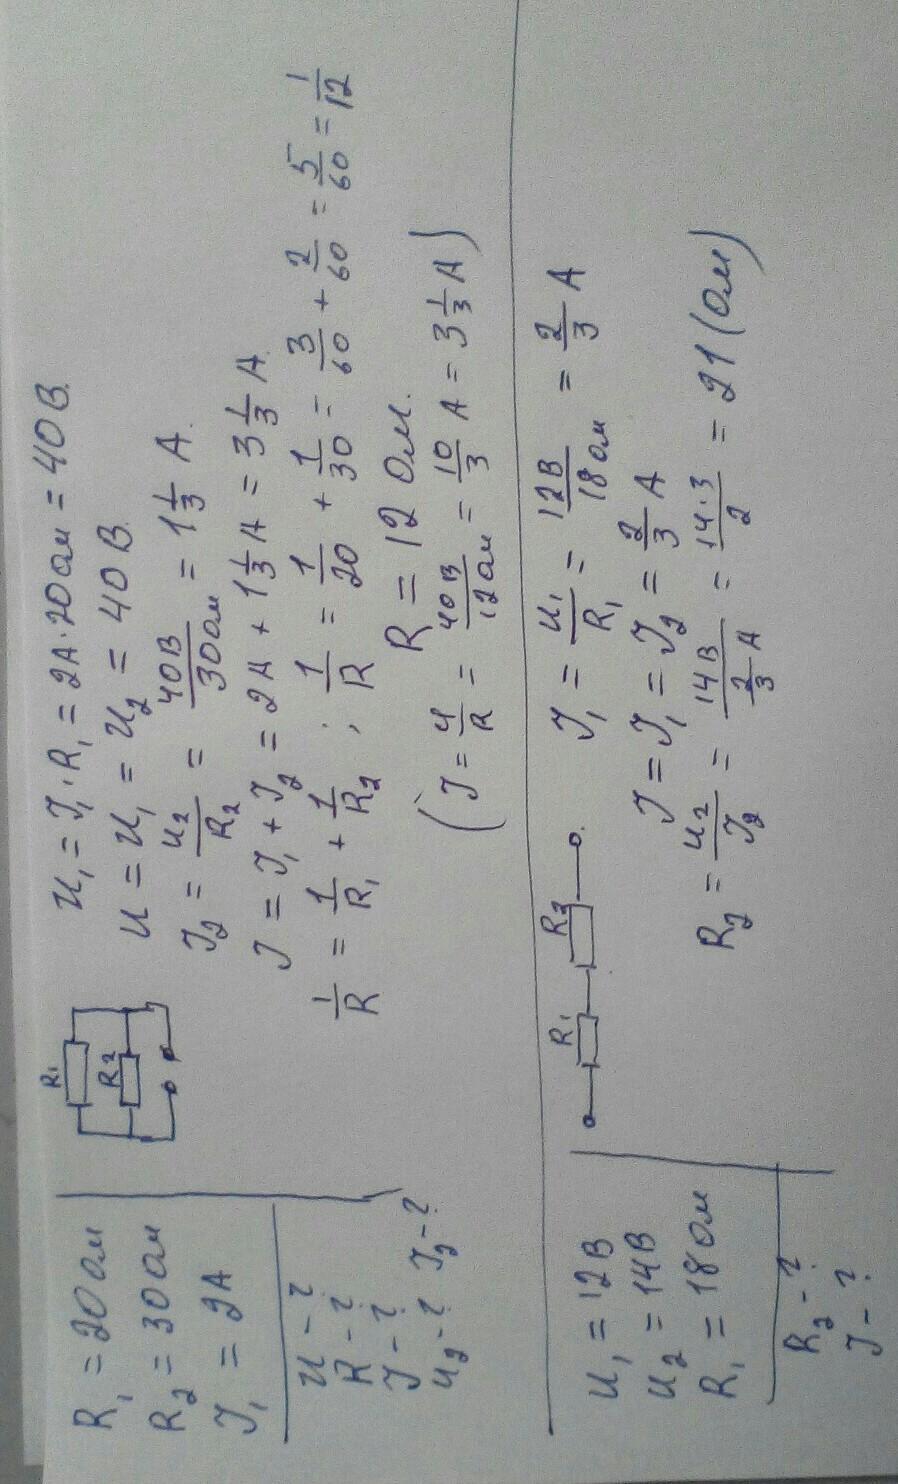 R₁ = 20 Ом
R₂ = 30 Ом
J₁ = 2А
U - ?
R - ?
J - ?
U₂ - ? J₂ - ?
R₁
R₂
U₁ = J₁ · R₁ = 2А · 20 Ом = 40 В.
U = U₁ = U₂ = 40 В
J₂ = U₂/R₂ = 40В/30Ом = 1 1/3 А.
J = J₁ + J₂ = 2А + 1 1/3 А = 3 1/3 А.
1/R = 1/R₁ + 1/R₂ ; 1/R = 1/20 + 1/30 = 3/60 + 2/60 = 5/60 = 1/12
R = 12 Ом.
(J = U/R = 40В/12Ом = 10/3 А = 3 1/3 А)
U₁ = 12В
U₂ = 14В
R₁ = 18 Ом
R₂ - ?
J - ?
R₁ R₂
J₁ = U₁/R₁ = 12В/18Ом = 2/3 А
J = J₁ = J₂ = 2/3 А
R₂ = U₂/J₂ = 14В/(2/3 А) = 14·3/2 = 21 (Ом)